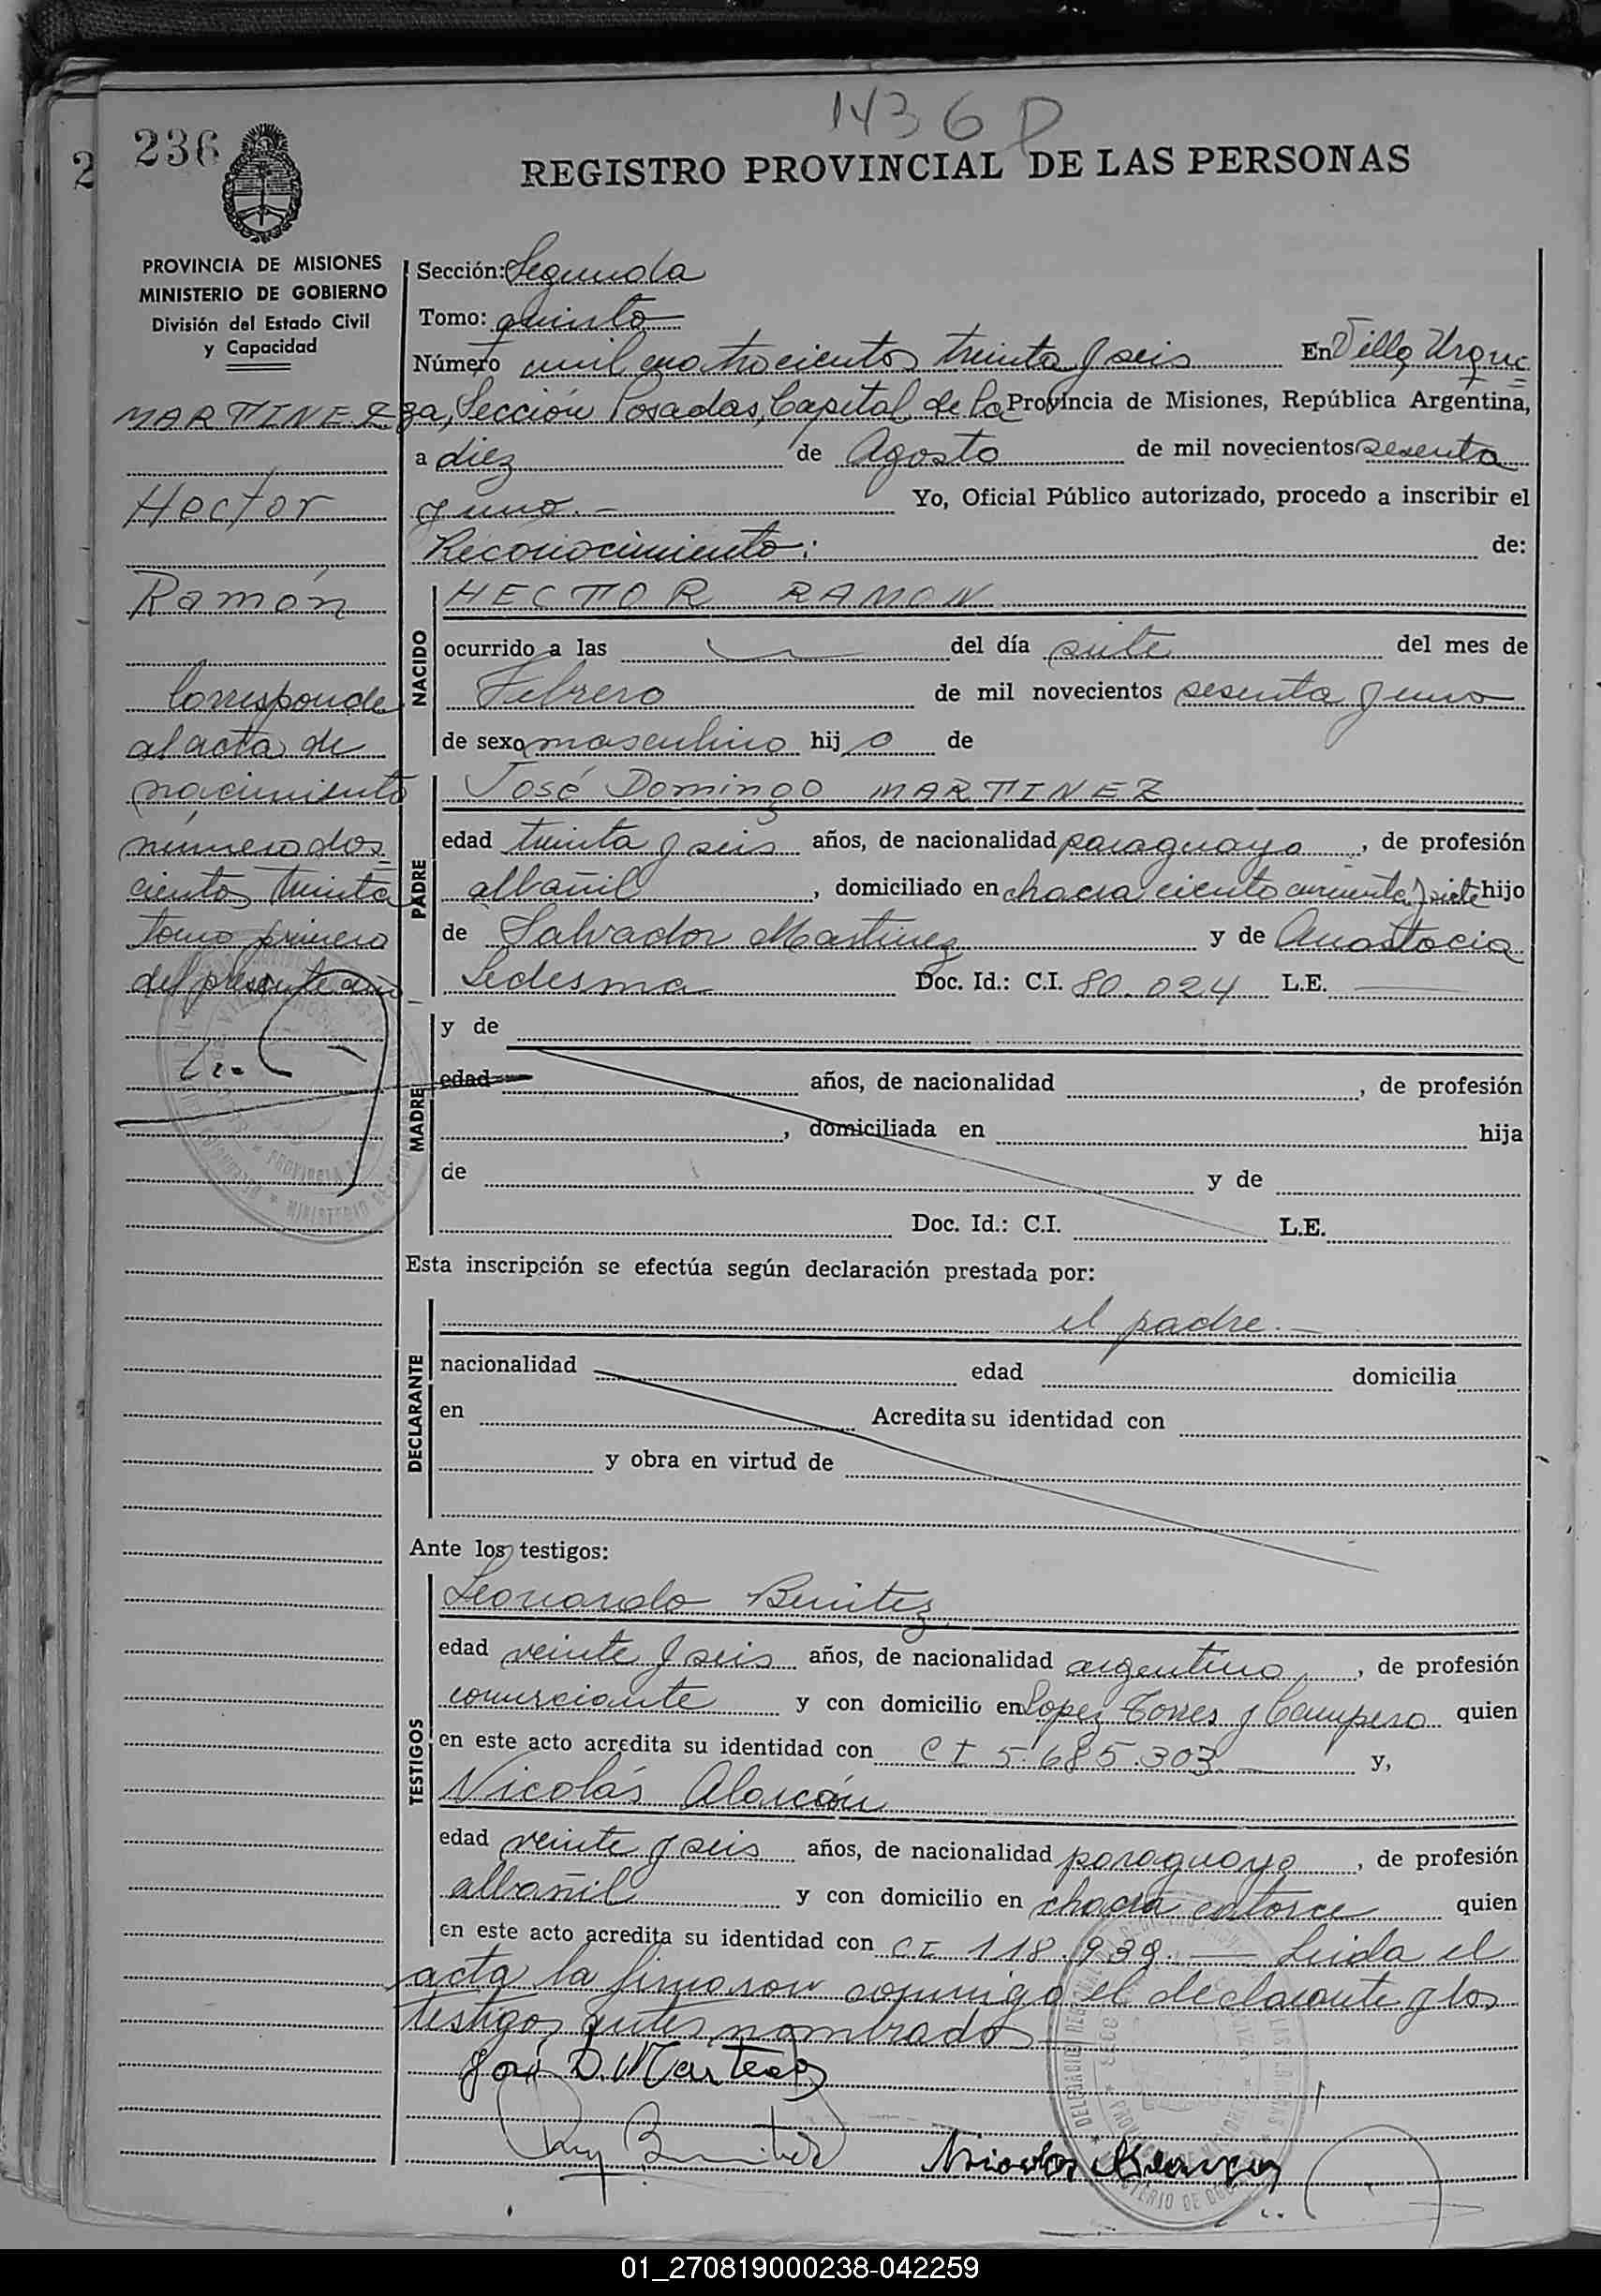 1436 P
236
2
REGISTRO PROVINCIAL DE LAS PERSONAS
PROVINCIA DE MISIONES
MINISTERIO DE GOBIERNO
División del Estado Civil
y Capacidad
MARTINEZ
Hector
Ramón
Corresponde
al acta de
nacimiento
número dos
cientos treinta
tomo primero
del presente año
Sección: Segunda
Tomo: quinto
Número mil cuatrocientos treinta y seis En Villa Urqui
za, Sección Posadas, Capital de la Provincia de Misiones, República Argentina,
a diez de Agosto de mil novecientos sesenta
y uno.- Yo, Oficial Público autorizado, procedo a inscribir el
Reconocimiento: de:
NACIDO
HECTOR RAMON
ocurrido a las del día siete del mes de
Febrero de mil novecientos sesenta y uno
de sexo masculino hijo de
PADRE
José Domingo MARTINEZ
edad treinta y seis años, de nacionalidad paraguaya, de profesión
albañil, domiciliado en chacra ciento cincuenta y siete hijo
de Salvador Martinez y de Anastacia
Ledesma Doc. Id.: C.I. 80.024 L.E.
MADRE
y de
edad años, de nacionalidad , de profesión
, domiciliada en hija
de y de
Doc. Id.: C.I. L.E.
Esta inscripción se efectúa según declaración prestada por:
DECLARANTE
el padre.-
nacionalidad edad domicilia
en Acredita su identidad con
y obra en virtud de
Ante los testigos:
TESTIGOS
Leonardo Benitez
edad veinte y seis años, de nacionalidad argentino, de profesión
comerciante y con domicilio en Lopez Torres y Campero quien
en este acto acredita su identidad con CI 5.685.303 y,
Nicolás Alarcón
edad veinte y seis años, de nacionalidad paraguaya, de profesión
albañil y con domicilio en chacra catorce quien
en este acto acredita su identidad con CI 118.939.— Leida el
acta la firmaron conmigo el declarante y los
testigos antes nombrados
José D. Martinez
Benitez
Nicolas Alarcon
01_270819000238-042259